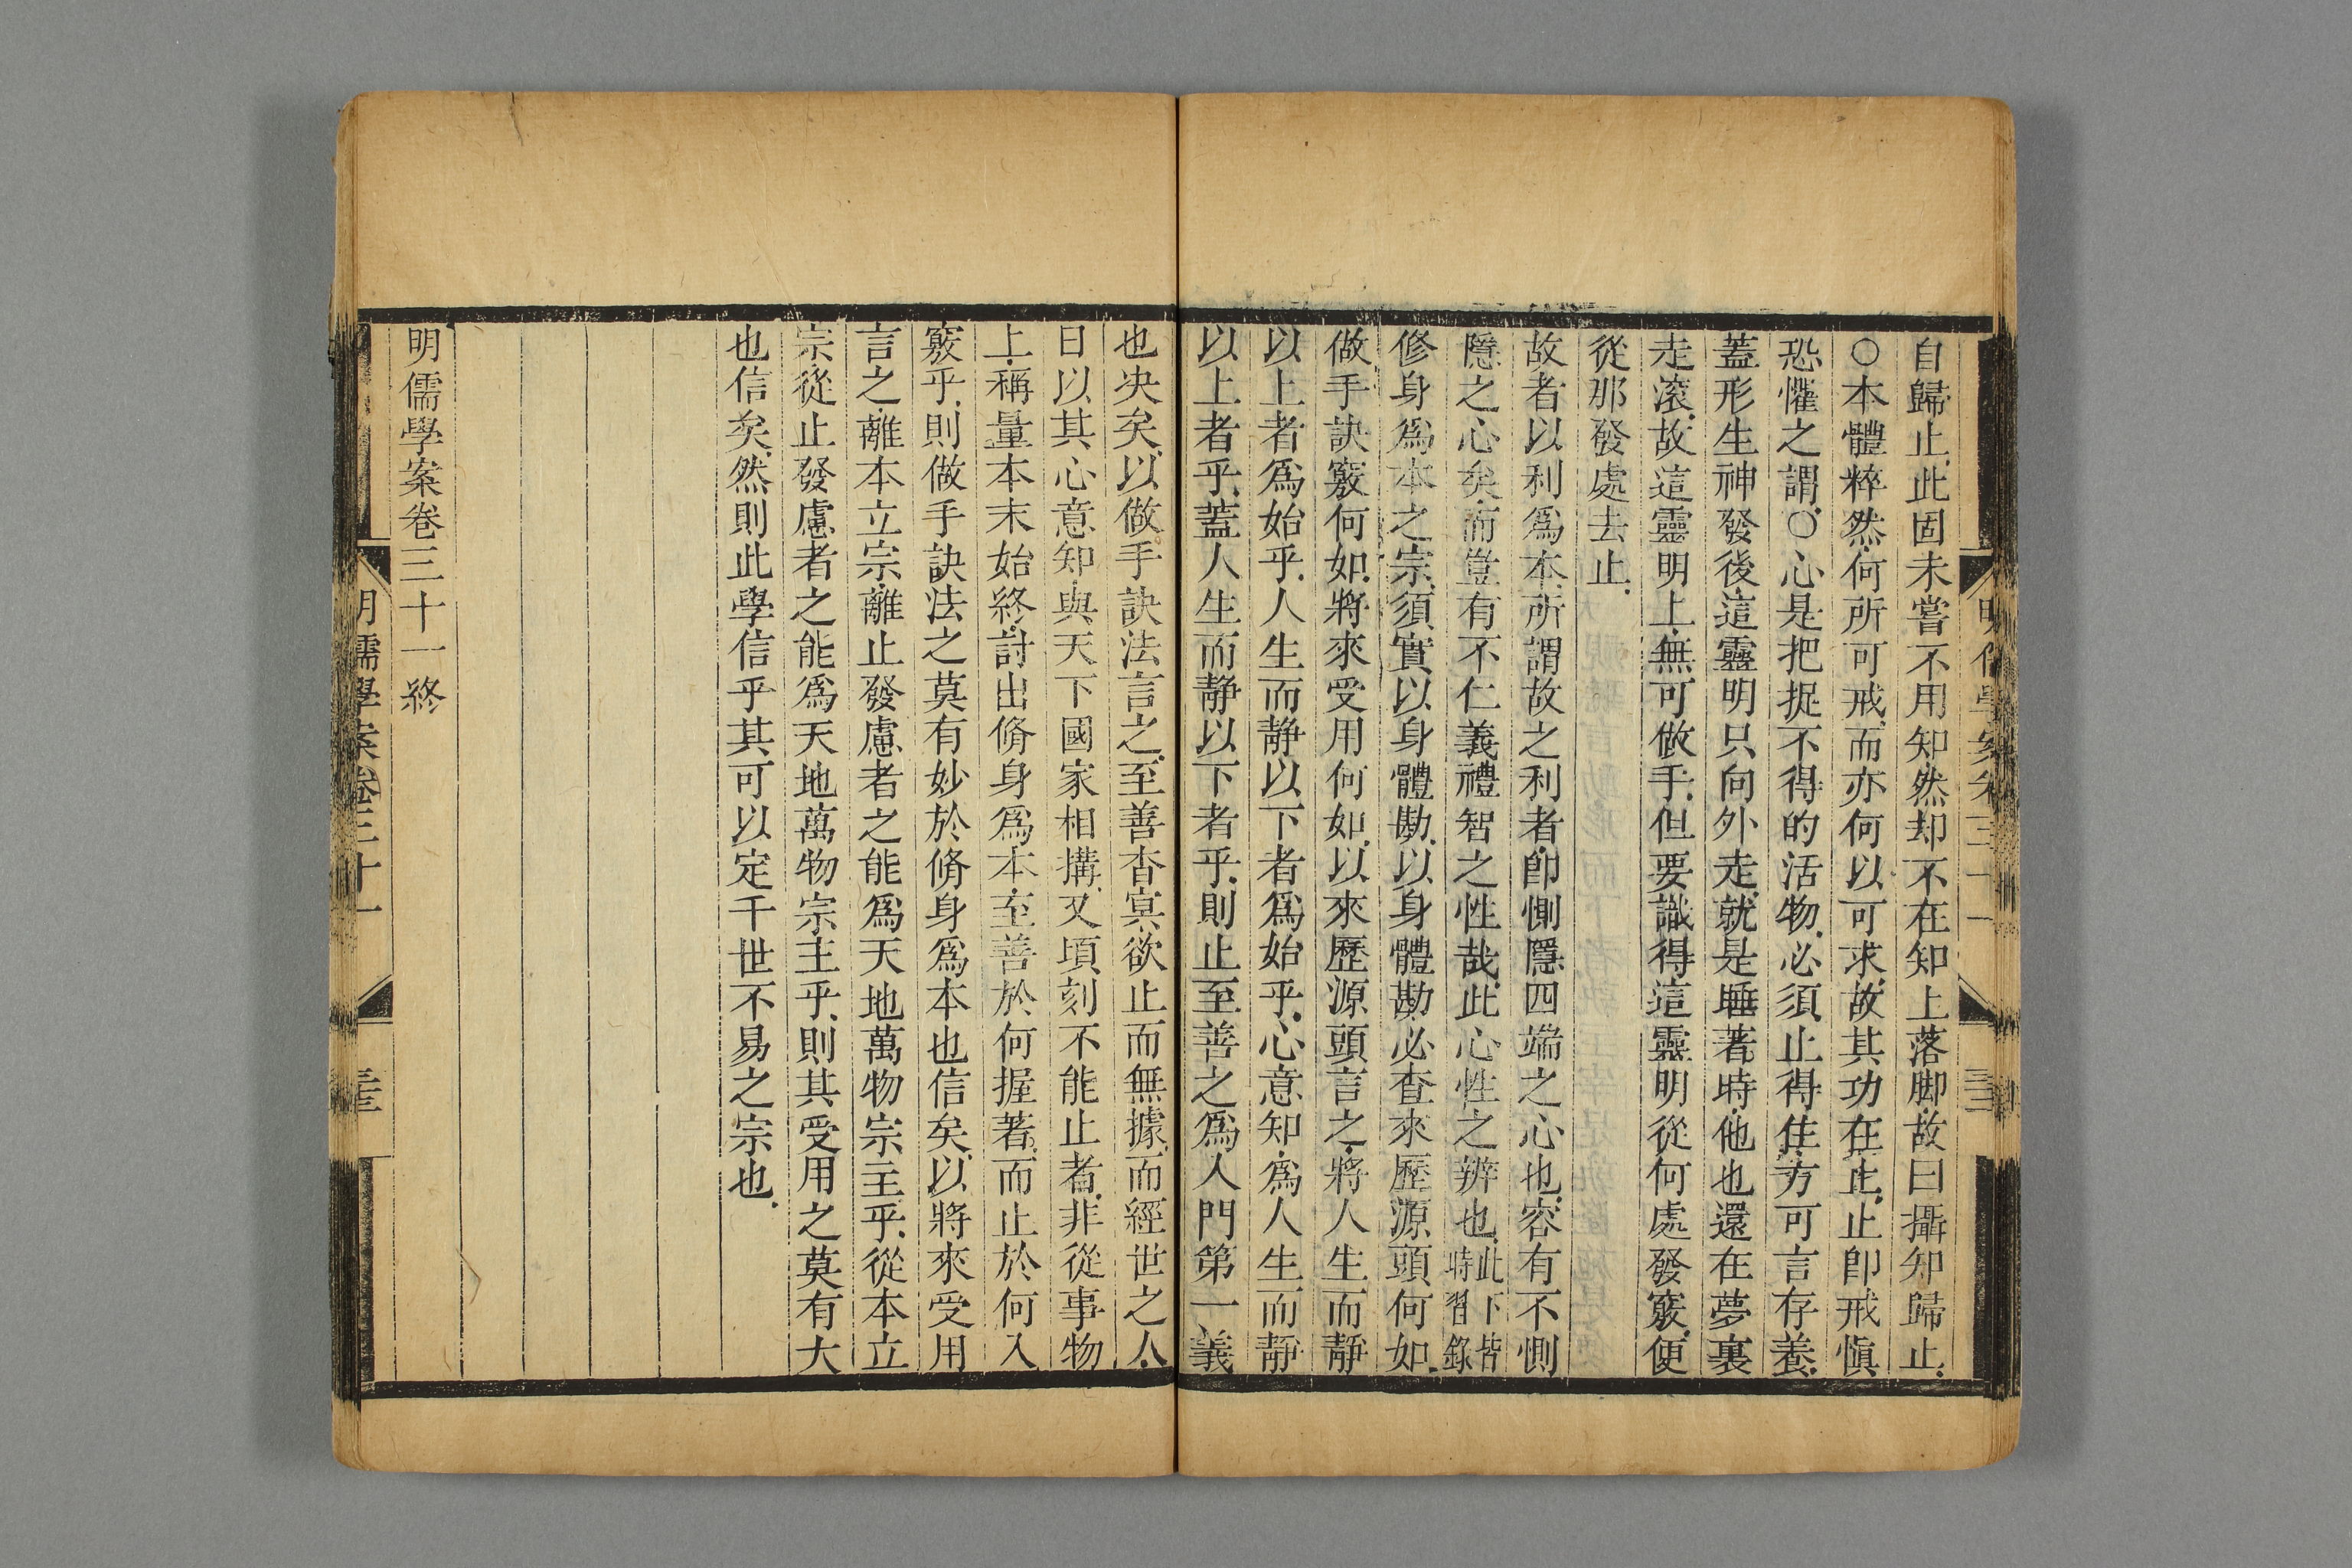 自歸止此固未嘗不用知然却不在知上落脚故曰攝知歸止
○本體粹然何所可戒而亦何以可求故其功在止止卽戒愼
恐懼之謂○心是把捉不得的活物必須止得住方可言存養
蓋形生神發後這靈明只向外走就是睡著時他也還在夢裏
走滚故這靈明上無可做手但要識得這靈明從何處發竅便
從那發處去止
故者以利爲本所謂故之利者卽惻隱四端之心也容有不惻
隱之心矣而豈有不仁義禮智之性哉此心性之辨也此下皆時習錄
修身爲本之宗須實以身體勘以身體勘必查來歷源頭何如
做手訣竅何如將來受用何如以來歷源頭言之將人生而靜
以上者爲始乎人生而靜以下者爲始乎心意知爲人生而靜
以上者乎蓋人生而靜以下者乎則止至善之爲人門第一義
也决矣以做手訣法言之至善杳冥欲止而無據而經世之人
日以其心意知與天下國家相搆又頃刻不能止者非從事物
上稱量本末始終討出脩身爲本至善於何握著而止於何入
竅乎則做手訣法之莫有妙於脩身爲本也信矣以將來受用
言之離本立宗離止發慮者之能爲天地萬物宗主乎從本立
宗從止發慮者之能爲天地萬物宗主乎則其受用之莫有大
也信矣然則此學信乎其可以定千世不易之宗也
明儒學案卷三十一終
明儒學案卷三十一